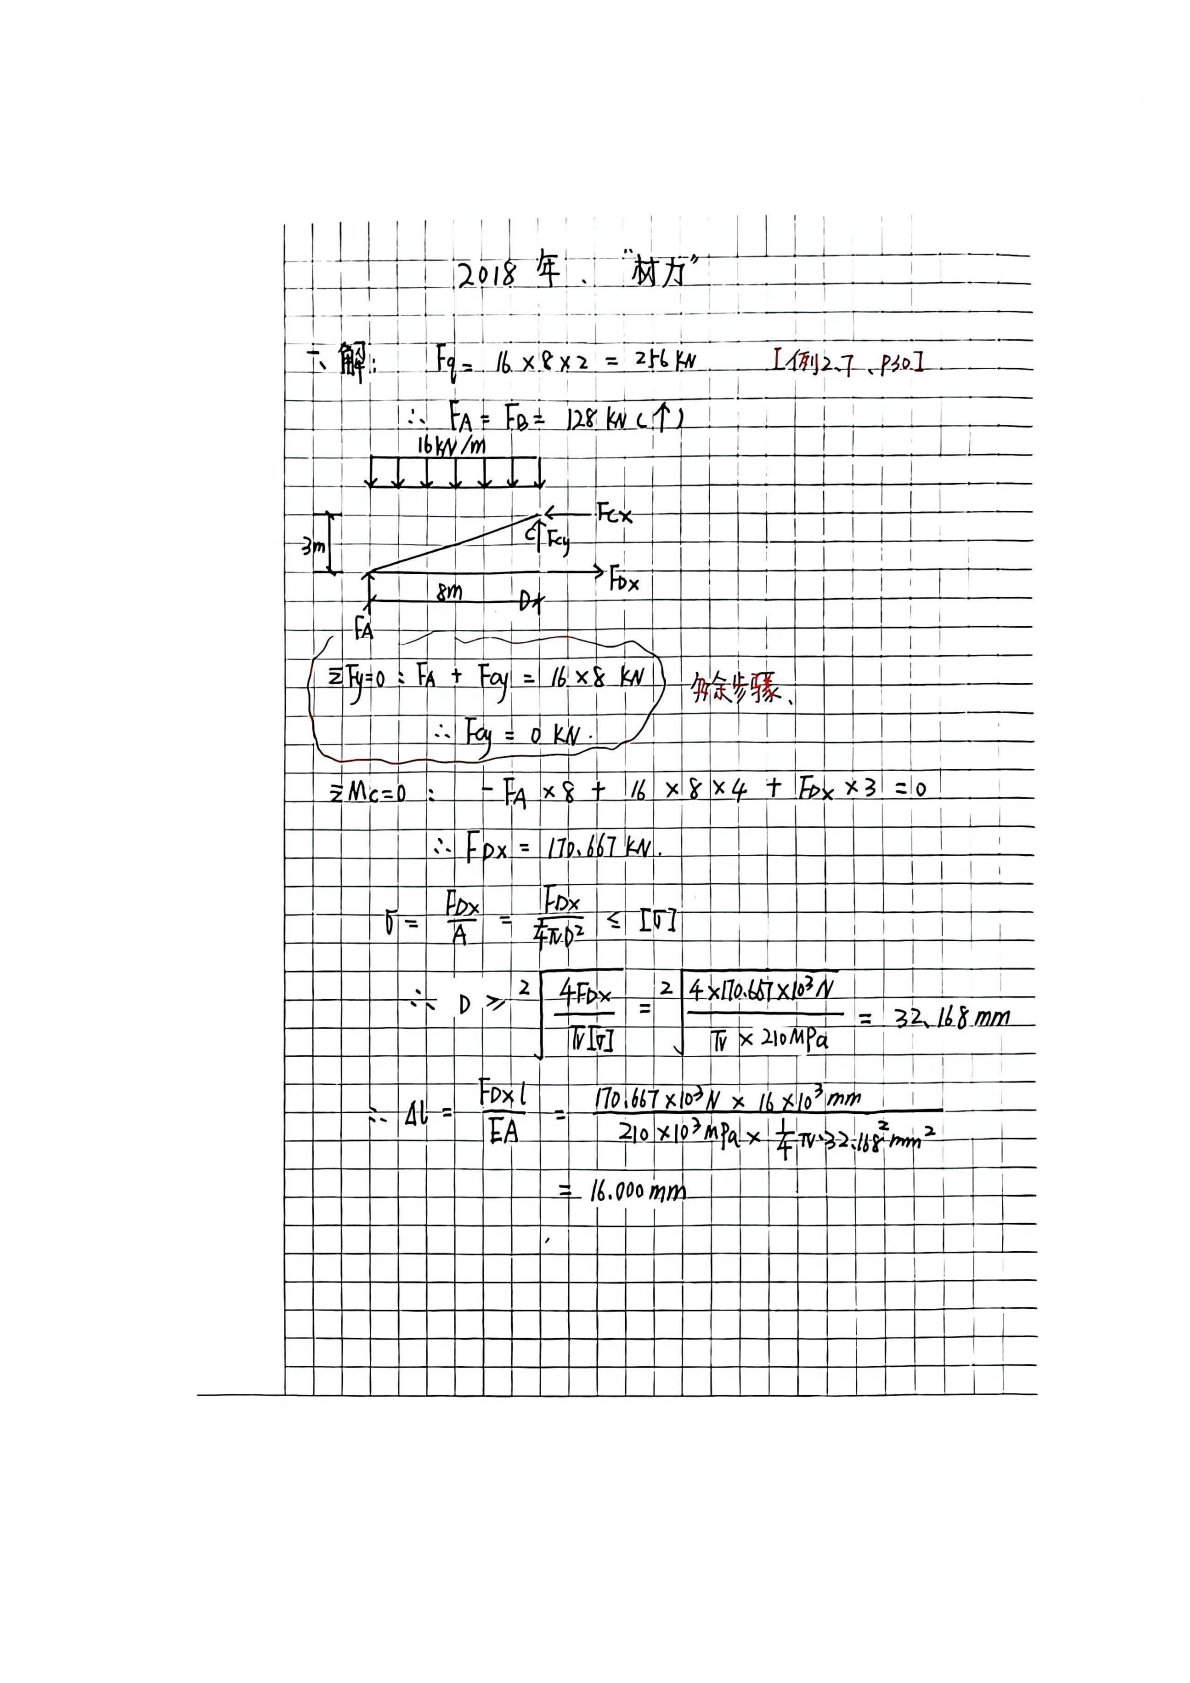 2018年、"材力"
一、解: Fq = 16×8×2 = 256 KN [例2.7、P30]
∴ FA = FB = 128 KN (↑)
16KN/m
FCX
C FCy
3m
FDX
8m D
FA
ΣFy=0: FA + FCy = 16×8 KN 多余步骤、
∴ FCy = 0 KN.
ΣMc=0: -FA×8 + 16×8×4 + FDX×3 = 0
∴ FDX = 170.667 KN.
σ = FDX/A = FDX/(1/4 πD²) ≤ [σ]
∴ D ≥ ²√(4FDX/π[σ]) = ²√(4×170.667×10³N/π×210MPa) = 32.168mm
∴ Δl = FDX l/EA = 170.667×10³N × 16×10³mm/210×10³MPa × 1/4 π·32.168²mm²
= 16.000mm